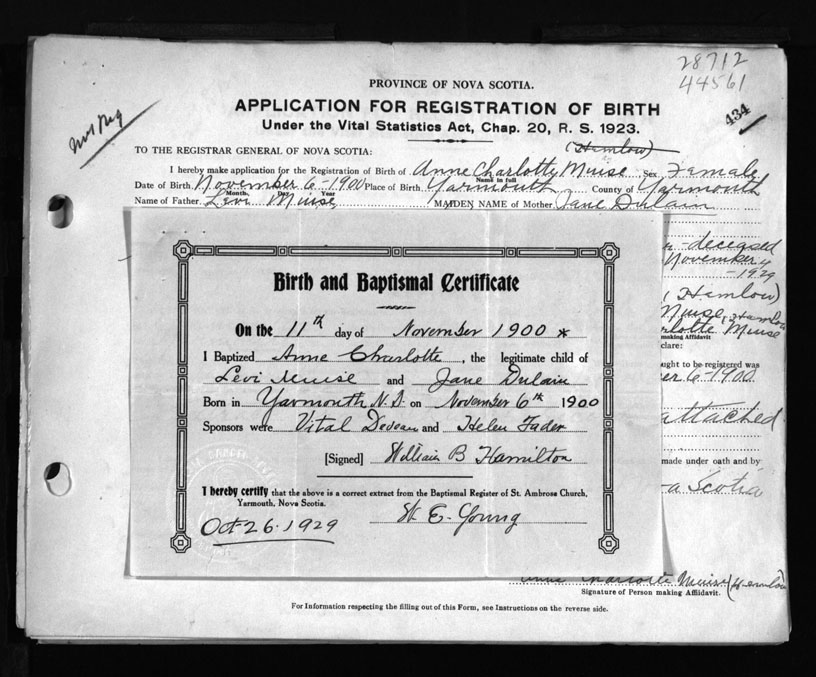 28712
44561
434
PROVINCE OF NOVA SCOTIA.
APPLICATION FOR REGISTRATION OF BIRTH
Under the Vital Statistics Act, Chap. 20, R. S. 1923.
TO THE REGISTRAR GENERAL OF NOVA SCOTIA:
(Hemlow)
I hereby make application for the Registration of Birth of Anne Charlotte Muise Sex Female
Name in full
Date of Birth November 6-1900 Place of Birth Yarmouth County of Yarmouth
Month, Day, Year
Name of Father Levi Muise MAIDEN NAME of Mother Jane Dulain
deceased
November 4
-1929
(Hemlow)
Muise, Hemlow
Charlotte Muise
making Affidavit
clare:
ought to be registered was
er 6-1900
attached
made under oath and by
a Scotia
Birth and Baptismal Certificate
On the 11th day of November 1900 *
I Baptized Anne Charlotte, the legitimate child of
Levi Muise and Jane Dulain
Born in Yarmouth N.S. on November 6th 1900
Sponsors were Vital Deveau and Helen Fader
[Signed] William B Hamilton
I hereby certify that the above is a correct extract from the Baptismal Register of St. Ambrose Church,
Yarmouth, Nova Scotia.
Oct 26. 1929 W. E. Young
Anne Charlotte Muise (Hemlow)
Signature of Person making Affidavit.
For Information respecting the filling out of this Form, see Instructions on the reverse side.